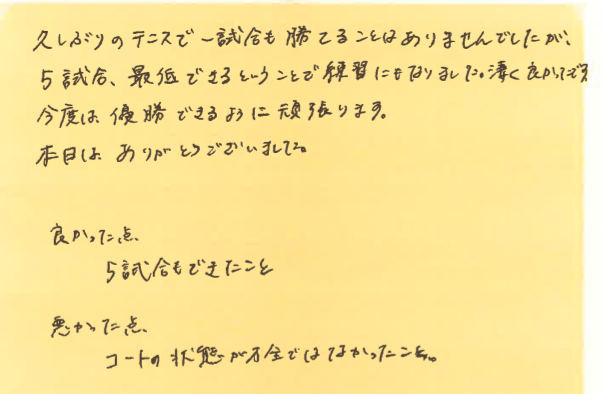 久しぶりのテニスで一試合も勝てることはありませんでしたが、
5試合、最低できるということで練習にもなりました。凄く良かったです
今度は優勝できるように頑張ります。
本日はありがとうございました。
良かった点、
5試合もできたこと
悪かった点、
コートの状態が万全ではなかったこと。